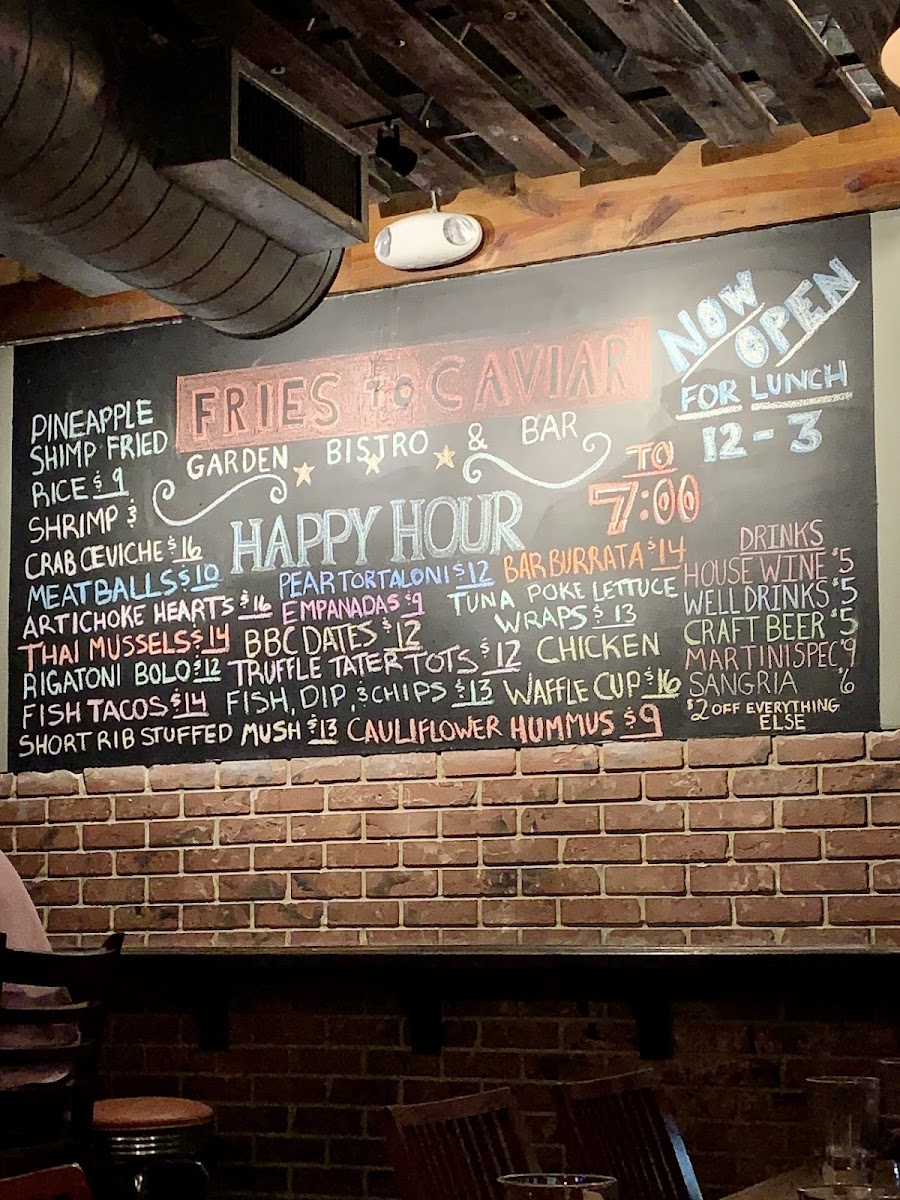 FRIES TO CAVIAR
GARDEN BISTRO & BAR
HAPPY HOUR
TO
7:00
NOW
OPEN
FOR LUNCH
12-3
PINEAPPLE
SHIMP FRIED
RICE $9
SHRIMP &
CRAB CEVICHE $16
MEATBALLS $10
ARTICHOKE HEARTS $16
THAI MUSSELS $14
RIGATONI BOLO $12
FISH TACOS $14
SHORT RIB STUFFED MUSH $13
PEAR TORTALONI $12
EMPANADAS $9
BBC DATES $12
TRUFFLE TATER TOTS $12
FISH, DIP, & CHIPS $13
CAULIFLOWER HUMMUS $9
BAR BURRATA $14
TUNA POKE LETTUCE
WRAPS $13
CHICKEN
WAFFLE CUP $16
DRINKS
HOUSE WINE $5
WELL DRINKS $5
CRAFT BEER $5
MARTINI SPEC $9
SANGRIA $6
$2 OFF EVERYTHING
ELSE